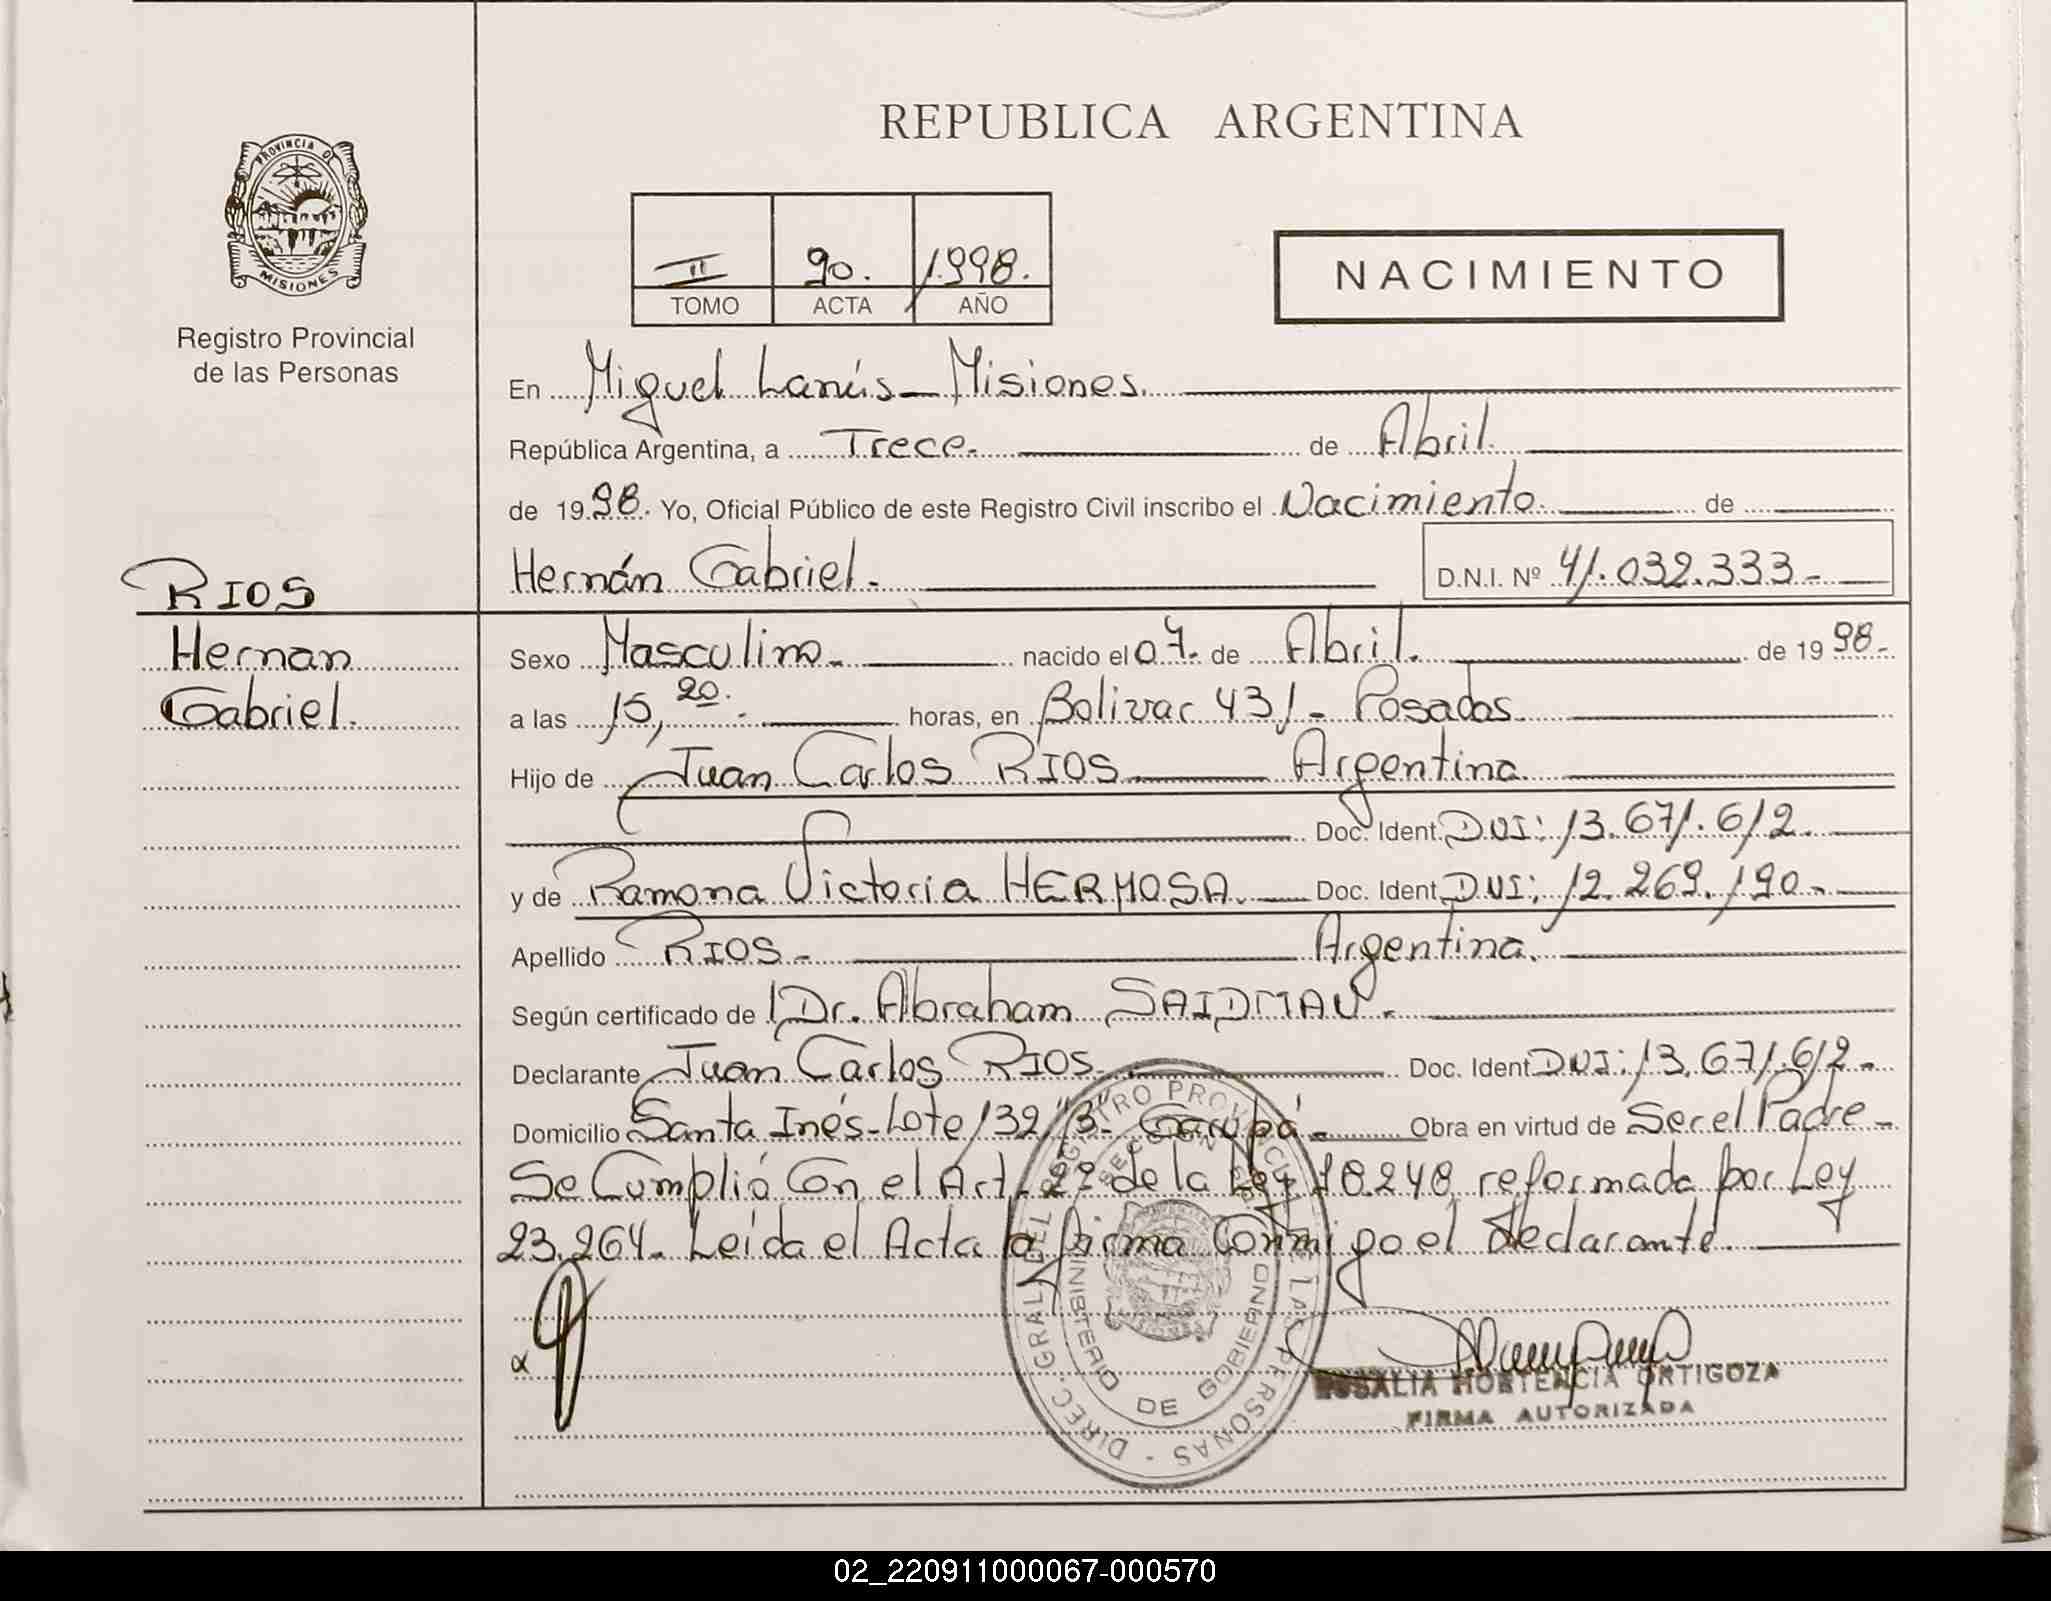 REPUBLICA ARGENTINA
PROVINCIA D
MISIONES
Registro Provincial
de las Personas
II 90. 1998.
TOMO ACTA AÑO
NACIMIENTO
En Miguel Lanús - Misiones.
República Argentina, a Trece. de Abril.
de 1998. Yo, Oficial Público de este Registro Civil inscribo el Nacimiento de
Hernán Gabriel. D.N.I. Nº 41.032.333-
RIOS
Hernan
Gabriel.
Sexo Masculino. nacido el 07. de Abril. de 1998.
a las 15,20. horas, en Bolivar 431 - Posadas.
Hijo de Juan Carlos RIOS Argentina
Doc. Ident. DNI: 13.671.612.
y de Ramona Victoria HERMOSA. Doc. Ident. DNI: 12.269.190-
Apellido RIOS - Argentina.
Según certificado de Dr. Abraham SAIDMAN.
Declarante Juan Carlos RIOS. Doc. Ident DNI: 13.671.612-
Domicilio Santa Inés - Lote 132 "3" - Garupá - Obra en virtud de Ser el Padre -
Se Cumplió Con el Art. 2º de la Ley 18.248 reformada por Ley
23.264. Leída el Acta la firma Conmigo el declarante.
DIREC. GRAL. DEL REGISTRO PROVINCIAL DE LAS PERSONAS -
MINISTERIO DE GOBIERNO
ROSALIA HORTENCIA ORTIGOZA
FIRMA AUTORIZADA
02_220911000067-000570